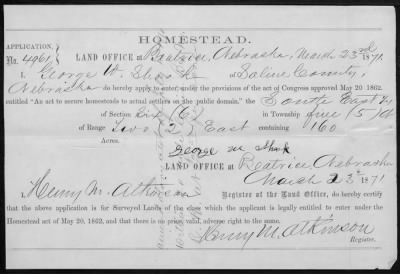 HOMESTEAD.
APPLICATION,
No. 4961 LAND OFFICE at Beatrice, Nebraska, March 23rd 1871.
I, George W. of Saline County,
Nebraska do hereby apply to enter under the provisions of the act of Congress approved May 20, 1862,
entitled "An act to secure homesteads to actual settlers on the public domain," the South East 1/4
of Section Six (6) in Township five (5)
of Range Two (2) East containing 160
Acres.
George W
LAND OFFICE at Beatrice Nebraska
March 23rd 1871
I, Henry M. Atkinson Register of the Land Office, do hereby certify
that the above application is for Surveyed Lands of the class which the applicant is legally entitled to enter under the
Homestead act of May 20, 1862, and that there is no prior, valid, adverse right to the same.
Henry M. Atkinson
Register.